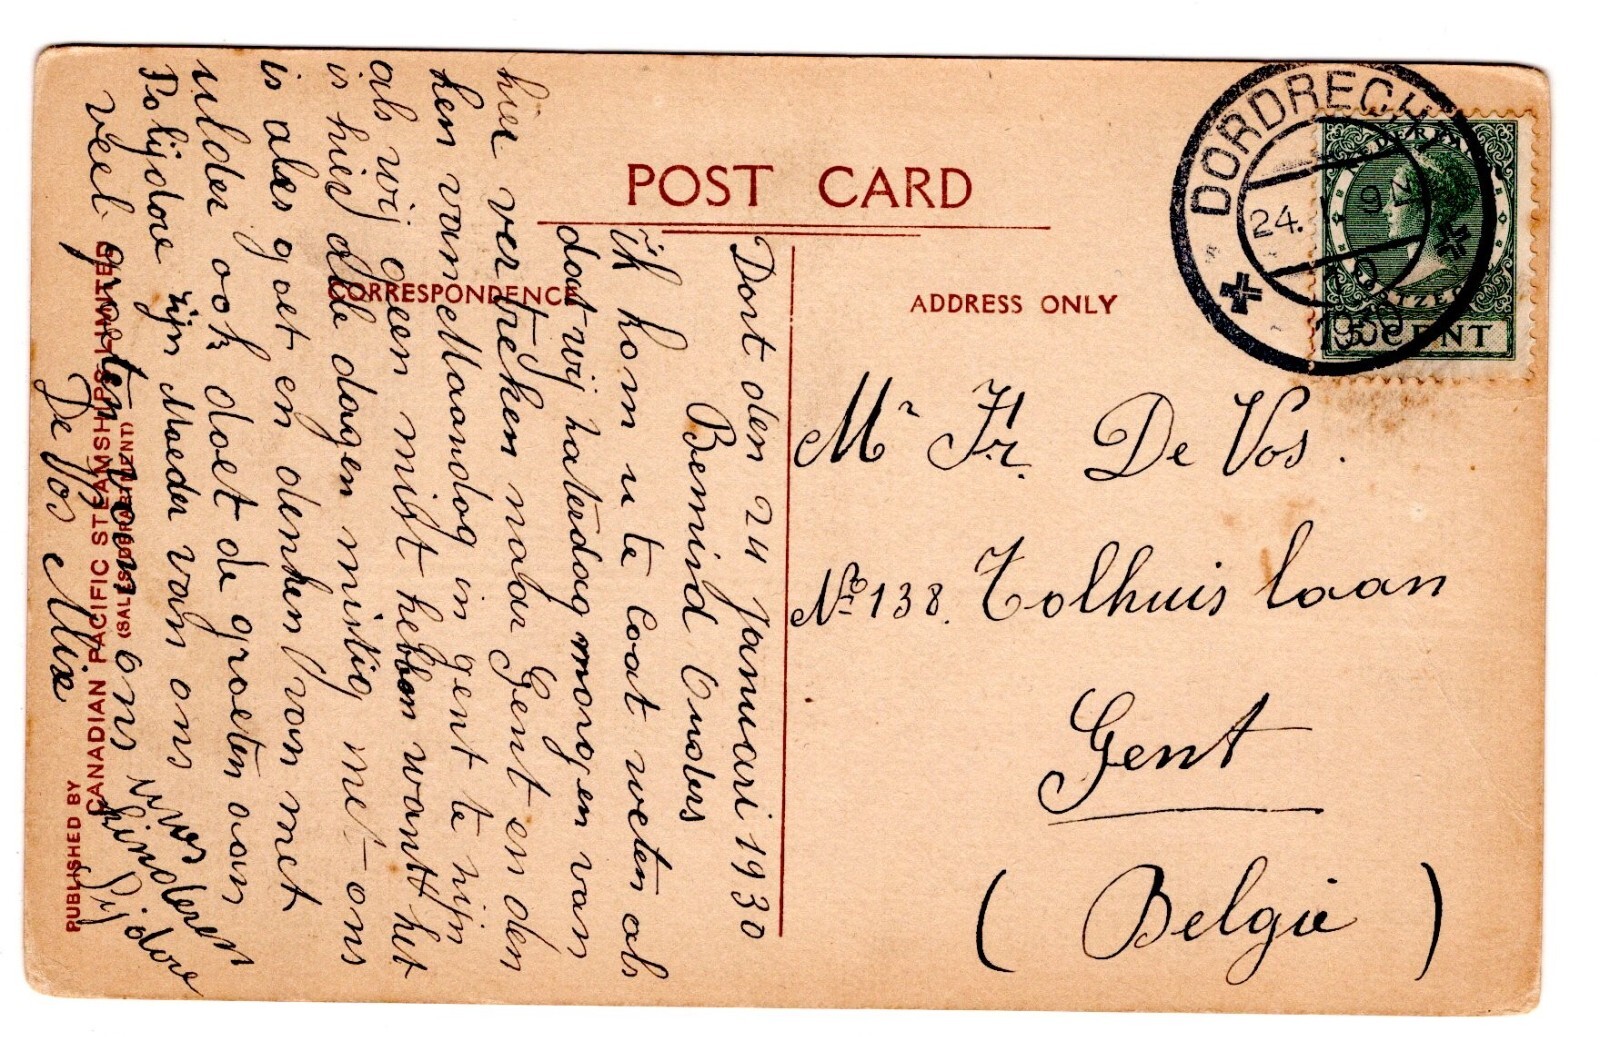 POST CARD
CORRESPONDENCE
ADDRESS ONLY
DORDRECHT
24. 1 9-N
1930
NEDERLAND
POSTZEGEL
5 CENT
Mr Fr. De Vos.
No 138. Tolhuis laan
Gent
(Belgie)
Dort den 24 januari 1930
Bemind Ouders
ik kom u te laat weten als
dat wij zaterdag morgen van
hier vertrekken naar Gent en den
ken van Maandag in gent te zijn
als wij geen mist hebben want het
is hier alle dagen mistig met ons
is alles goet en denken van met
ulder ook doet de groeten aan
Polijdoor zijn Moeder van ons
veel groeten van ons uwos kinderen
De Vos Alix Polijdoor
PUBLISHED BY
CANADIAN PACIFIC STEAMSHIPS LIMITED
(SALES DEPARTMENT)